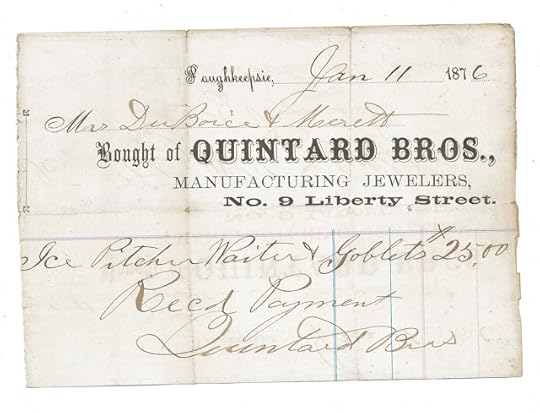 Poughkeepsie, Jan 11 1876
Mrs DuBoice & Merett
Bought of QUINTARD BROS.,
MANUFACTURING JEWELERS,
No. 9 Liberty Street.
Ice Pitcher Waiter & Goblets $25.00
Recd Payment
Quintard Bros